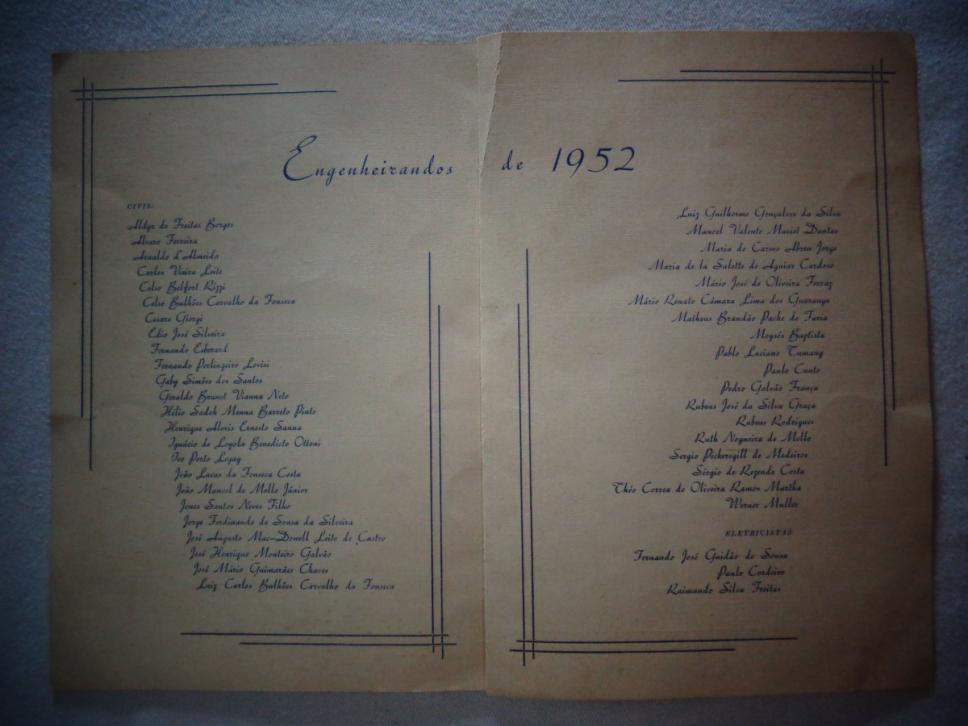 Engenheirandos de 1952
CIVIS:
Aldyr de Freitas Borges
Alvaro Ferreira
Arnaldo d'Almeida
Carlos Vieira Leite
Celio Belfort Rizzi
Celso Bulhões Carvalho da Fonseca
Cesare Giorgi
Edio José Silveira
Fernando
Fernando Perlingeiro Lovisi
Gaby Simões dos Santos
Geraldo Vianna Neto
Hélio Sadok Menna Barreto Pinto
Henrique Aloris Ernesto Sanna
Ignácio de Loyola Benedicto Ottoni
Ivo Porto
João Lucas da Fonseca Costa
João Manoel de Mello Júnior
Jones Santos Neves Filho
Jorge Ferdinando de Sousa da Silveira
José Augusto Mac-Dowell Leite de Castro
José Henrique Monteiro Galvão
José Mário Guimarães Chaves
Luiz Carlos Bulhões Carvalho da Fonseca
Luiz Guilherme Gonçalves da Silva
Manoel Valente Maciel Dantas
Maria do Carmo Abreu Jorge
Maria de la Salette de Aguiar Cardoso
Mário José de Oliveira Ferraz
Mário Renato Câmara Lima dos Guaranys
Matheus Brandão Pache de Faria
Moysés Baptista
Pablo Luciano
Paulo Cunto
Pedro Galvão França
Rubens José da Silva Graça
Rubens Rodrigues
Ruth Nogueira de Mello
Sergio Pickersgill de Medeiros
Sérgio de Rezende Costa
Théo Correa de Oliveira Ramos Martha
Werner Muller
ELETRICISTAS
Fernando José Gusdão de Sousa
Paulo Cordeiro
Raimundo Silva Freitas